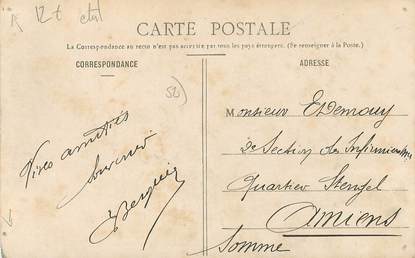 12 t état
CARTE POSTALE
La Correspondance au recto n'est pas acceptée par tous les pays étrangers. (Se renseigner à la Poste.)
CORRESPONDANCE
ADRESSE
52)
Vives amitiés
Monsieur
2e Section des Infirmiers
Quartier Stengel
Amiens
Somme